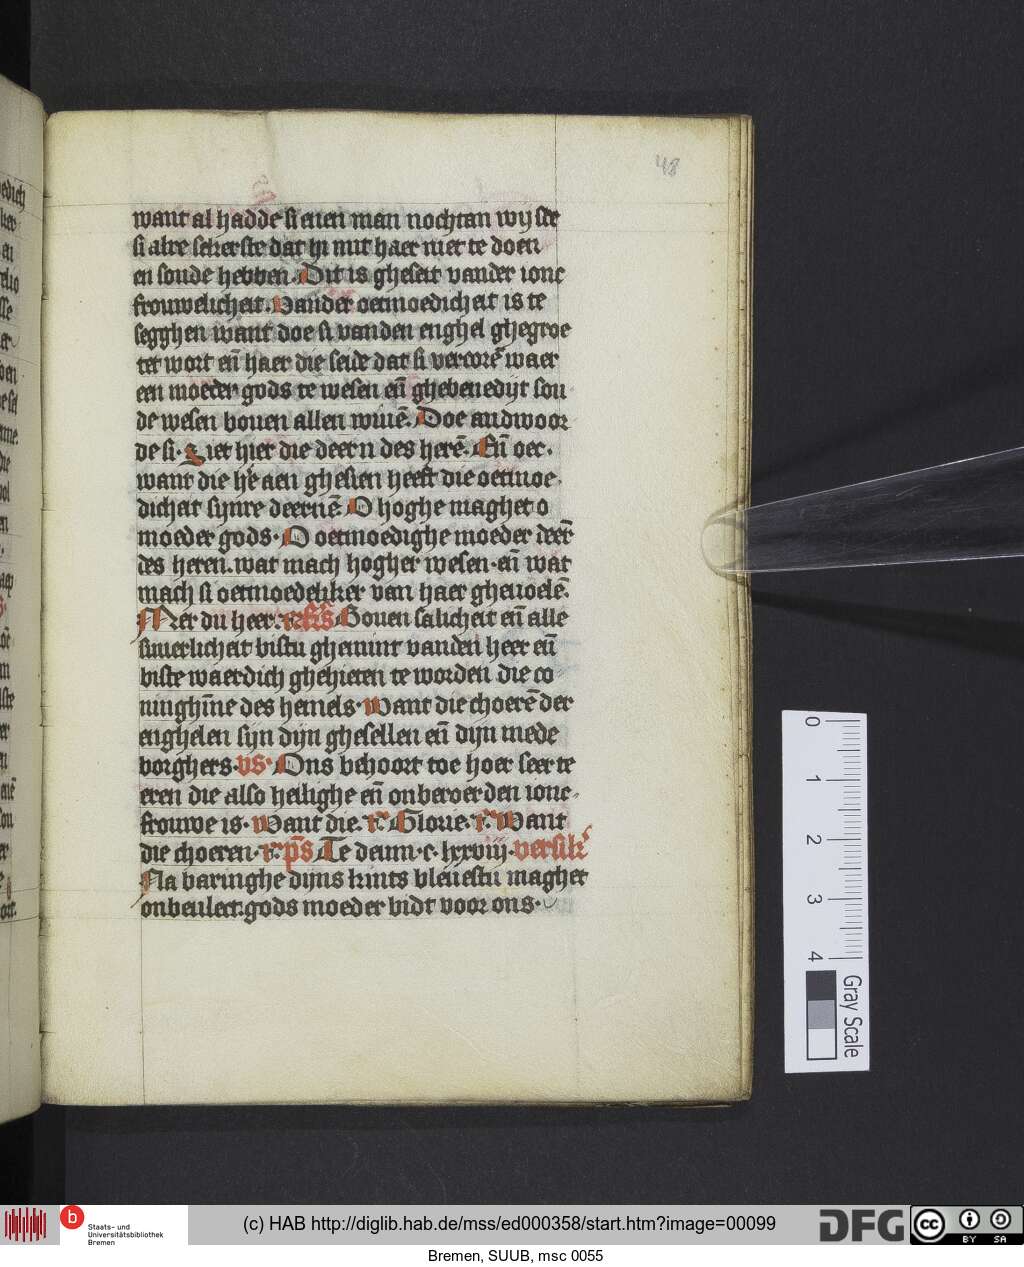 48
want al hadde si enen man nochtan wyste
si alre sekerste dat hi mit haer niet te doen
en soude hebben. Dit is gheseit vander ionc
frouwelicheit. Vander oetmoedicheit is te
segghen want doe si vanden enghel ghegroe
tet wort eñ haer die seide dat si vercorē waer
een moeder gods te wesen eñ ghebenedijt sou
de wesen bouen allen wiuē. Doe andwoor
de si. Siet hier die deern des herē. Eñ oec.
want die he aen ghesien heeft die oetmoe
dicheit synre deernē. O hoghe maghet o
moeder gods. O oetmoedighe moeder deer̄
des heren. wat mach hogher wesen. eñ wat
mach si oetmoedeliker van haer gheuoelē.
Mer du heer. Bouen salicheit eñ alle
suuerlicheit bistu ghemint vanden heer eñ
biste waerdich ghehieten te worden die co
ninghīne des hemels. Want die choerē der
enghelen sijn dijn ghesellen eñ dijn mede
borghers. vs. Ons behoort toe hoer seer te
eren die also heilighe eñ onberoerden ionc
frouwe is. Want die. r. Glorie. r. Want
die choeren. r. ps Te deum. c. lxxviij. versik
Na baringhe dijns kints bleuestu maghet
onbeulect. gods moeder bidt voor ons.
0
1
2
3
4
Gray Scale
b
Staats- und
Universitätsbibliothek
Bremen
(c) HAB http://diglib.hab.de/mss/ed000358/start.htm?image=00099
DFG
cc
BY SA
Bremen, SUUB, msc 0055